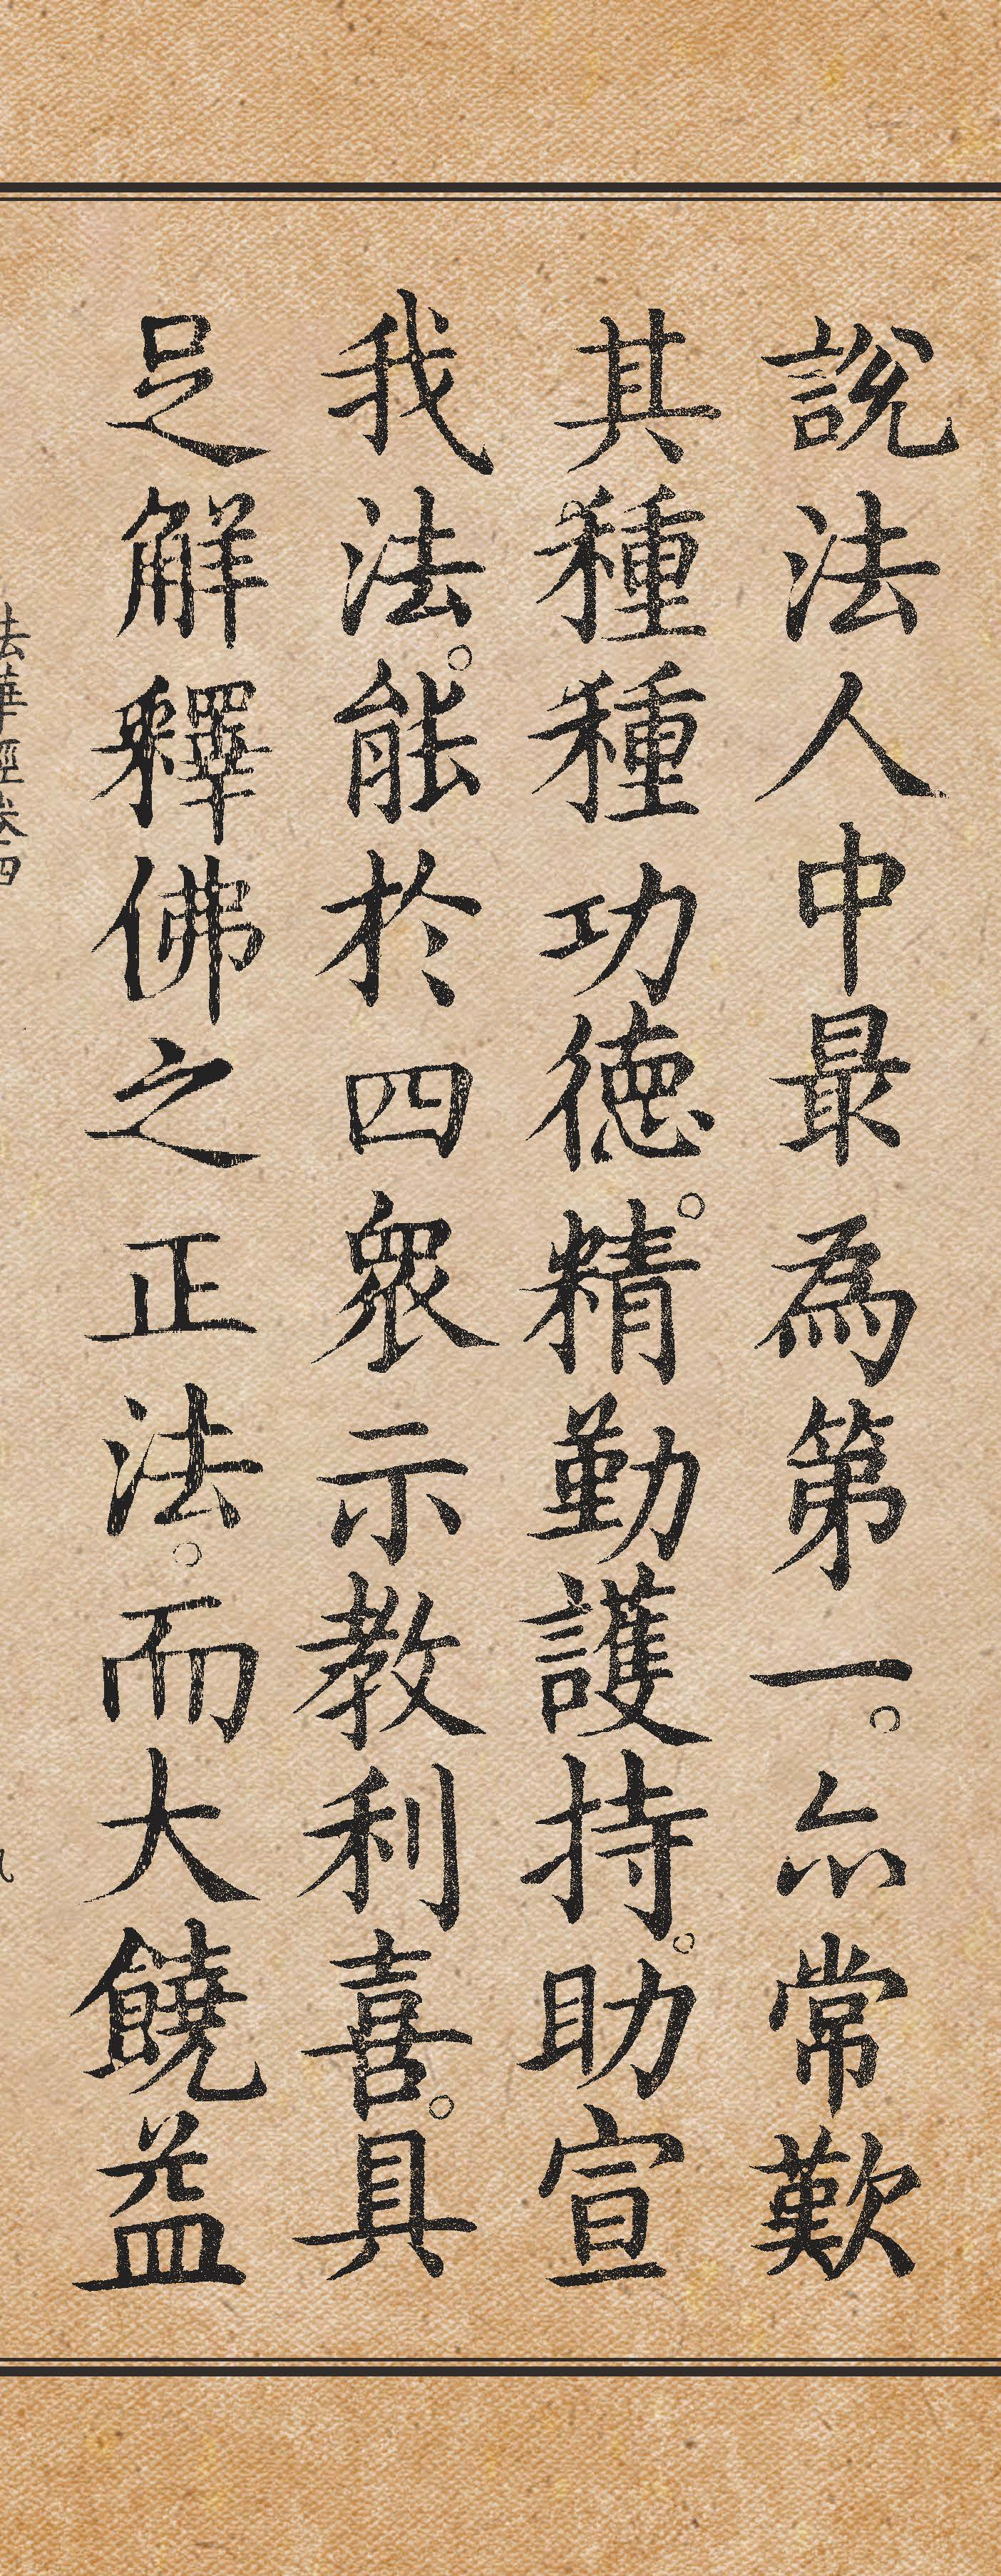 說法人中最為第一。亦常歎
其種種功德。精勤護持。助宣
我法。能於四眾示教利喜。具
足解釋佛之正法。而大饒益
法華經卷四